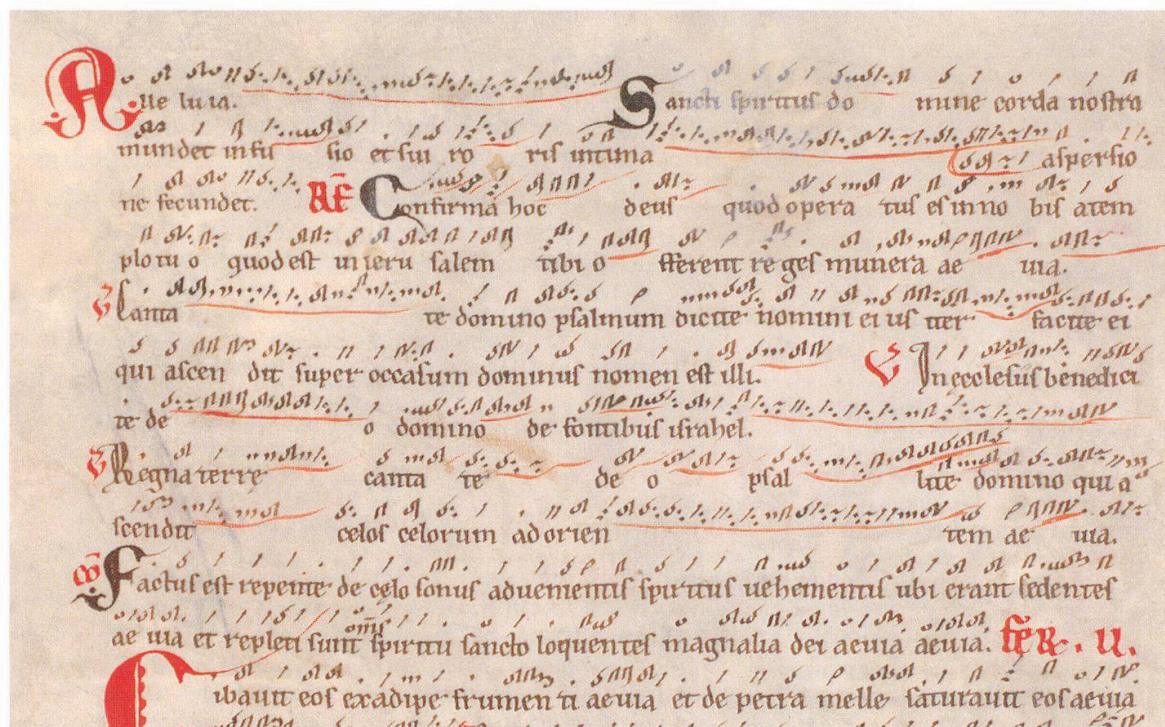 Alle luia. Sancti spiritus do mine corda nostra
mundet infu sio et sui ro ris intima aspersio
ne fecundet. Confirma hoc deus quod opera tus es in no bis a tem
plo tu o quod est in ieru salem tibi o fferent re ges munera ae uia.
Canta te domino psalmum dicite nomini ei us iter facite ei
qui ascen dit super occasum dominus nomen est illi. In ecclesiis benedici
te de o domino de fontibus israhel.
Regna terre canta te de o psal lite domino qui a
scendit celos celorum ad orien tem ae uia.
Factus est repente de celo sonus aduenientis spiritus uehementis ubi erant sedentes
ae uia et repleti sunt omnes spiritu sancto loquentes magnalia dei aeuia aeuia. II.
Cibauit eos ex adipe frumen ti aeuia et de petra melle saturauit eos aeuia